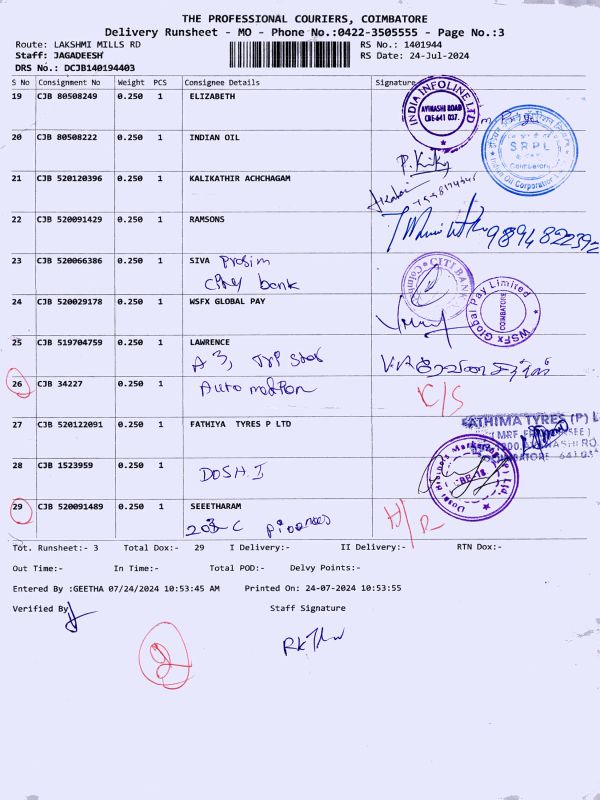 THE PROFESSIONAL COURIERS, COIMBATORE
Delivery Runsheet - MO - Phone No.:0422-3505555 - Page No.:3
Route: LAKSHMI MILLS RD RS No.: 1401944
Staff: JAGADEESH RS Date: 24-Jul-2024
DRS No.: DCJB140194403
S No Consignment No Weight PCS Consignee Details Signature
19 CJB 80508249 0.250 1 ELIZABETH
INDIA INFOLINE LTD
AVINASHI ROAD
CBE-641 037.
20 CJB 80508222 0.250 1 INDIAN OIL
SRPL
Coimbatore
Indian Oil Corporation Ltd
21 CJB 520120396 0.250 1 KALIKATHIR ACHCHAGAM
22 CJB 520091429 0.250 1 RAMSONS
9894822392
23 CJB 520066386 0.250 1 SIVA
City bank
CITI BANK
24 CJB 520029178 0.250 1 WSFX GLOBAL PAY
WSFx Global Pay Limited
COIMBATORE
25 CJB 519704759 0.250 1 LAWRENCE
A 3, Star
26 CJB 34227 0.250 1 Automation C/S
27 CJB 520122091 0.250 1 FATHIYA TYRES P LTD
FATHIMA TYRES (P) L
28 CJB 1523959 0.250 1
DOSHI
29 CJB 520091489 0.250 1 SEEETHARAM
203-C
Tot. Runsheet:- 3 Total Dox:- 29 I Delivery:- II Delivery:- RTN Dox:-
Out Time:- In Time:- Total POD:- Delvy Points:-
Entered By :GEETHA 07/24/2024 10:53:45 AM Printed On: 24-07-2024 10:53:55
Verified By Staff Signature
2